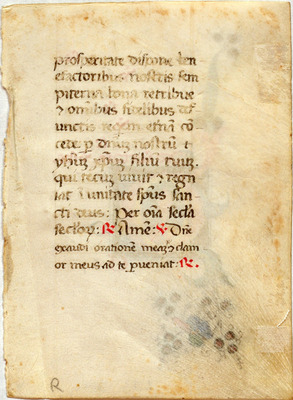 prosperitate dispone ben
efactoribus nostris sem
piterna bona retribue
⁊ omibus fidelibus def
unctis requiem etnā cō
cede p̱ dnm̄ nostrū i
yhm̄ xp̄m filiū tuū.
qui tecuz viuit ⁊ regn
at ī unitate sp̄us san
cti deus: Per oīa secla
seclor̄: ℟ Amē: ℣ Dn̄e
exaudi orationē meaz ⁊ clam
or meus ad te p̱ueniat: ℟.
R